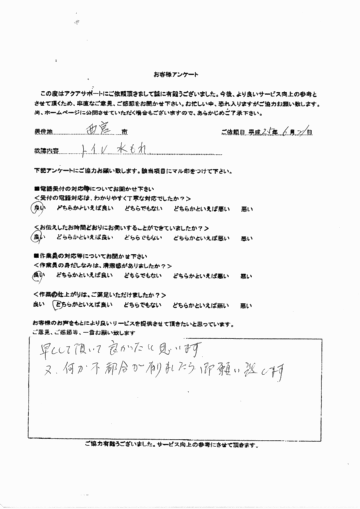 お客様アンケート
この度はアクアサポートにご依頼頂きまして誠に有難うございました。今後、より良いサービス向上の参考と
させて頂くため、率直なご意見、ご感想をお聞かせ下さい。お忙しい中、恐れ入りますがご協力お願い致します。
尚、ホームページに公開させていただく場合もございますので、あらかじめご了承下さい。
御住所 西宮 市 ご依頼日 平成25年6月21日
故障内容 トイレ水もれ
下記アンケートにご協力お願い致します。該当項目にマル印をつけて下さい。
■電話受付の対応等についてお聞かせ下さい
<受付の電話対応は、わかりやすく丁寧な対応でしたか?>
良い どちらかといえば良い どちらでもない どちらかといえば悪い 悪い
<お伝えしたお時間どおりにお伺いすることができていましたか?>
良い どちらかといえば良い どちらでもない どちらかといえば悪い 悪い
■作業員の対応等についてお聞かせ下さい
<作業員の身だしなみは、清潔感がありましたか?>
良い どちらかといえば良い どちらでもない どちらかといえば悪い 悪い
<作業の仕上がりは、ご満足いただけましたか?>
良い どちらかといえば良い どちらでもない どちらかといえば悪い 悪い
お客様のお声をもとにより良いサービスを提供させて頂きたいと思っています。
ご意見、ご感想等、一言お願い致します
早くして頂いて良かったと思います
又、何か不都合が有れましたら御願い致します
ご協力有難うございました。サービス向上の参考にさせて頂きます。